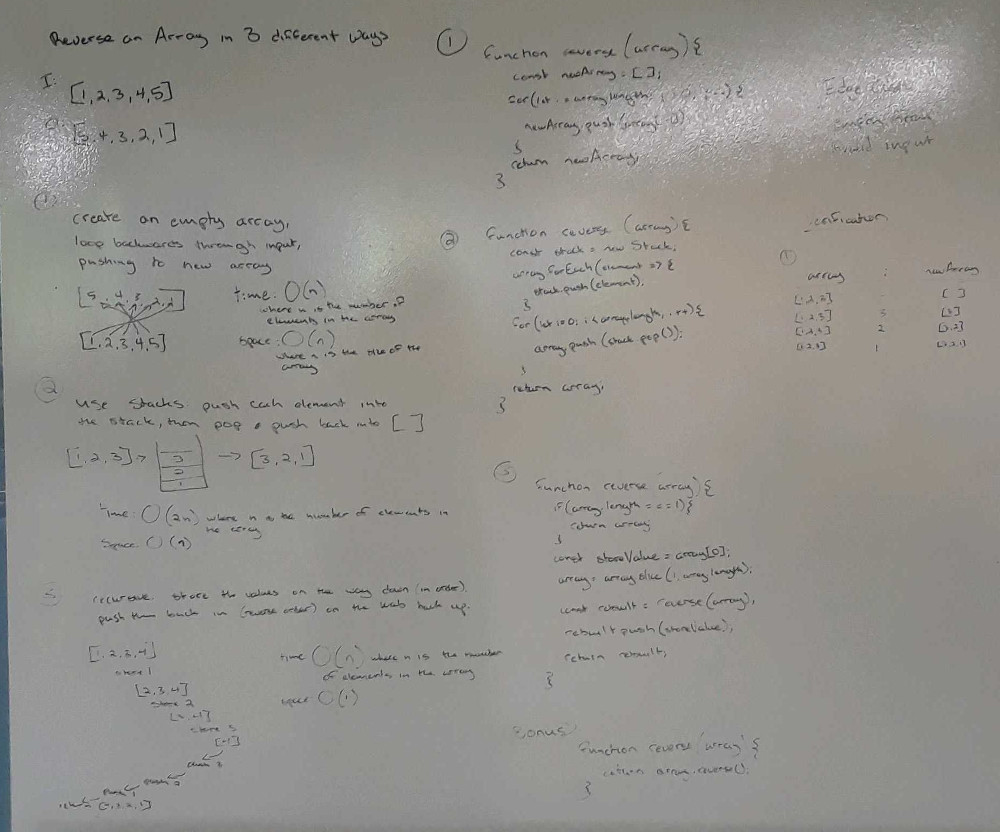 Reverse an Array in 3 different ways
I:
[1,2,3,4,5]
O:
[5,4,3,2,1]
①
create an empty array,
loop backwards through input,
pushing to new array
[5, 4, 3, 2, 1]
[1,2,3,4,5]
time: O(n)
where n is the number of
elements in the array
space: O(n)
where n is the size of the
array
②
use stacks push each element into
the stack, then pop & push back into [ ]
[1,2,3] →
3
2
1
→ [3,2,1]
time: O(2n) where n is the number of elements in
the array
space O(n)
3
recursive: store the values on the way down (in order).
push them back in (reverse order) on the way back up.
[1,2,3,4]
store 1
[2,3,4]
store 2
[3,4]
store 3
[4]
push 3
push 2
push 1
return [4,3,2,1]
time O(n) where n is the number
of elements in the array
space O(1)
①
function reverse (array) {
const newArray = [ ];
for(let array.length; {
newArray.push(array
}
return newArray;
}
Edge
empty array
input
②
function reverse (array) {
const stack = new Stack;
array.forEach(element => {
stack.push(element);
}
for(let i=0; i<array.length; i++) {
array.push(stack.pop());
}
return array;
}
verification
①
array i newArray
[1,2,3] - [ ]
[1,2,3] 3 [3]
[1,2,3] 2 [3,2]
[1,2,3] 1 [3,2,1]
3
function reverse array) {
if(array.length === 1) {
return array
}
const storeValue = array[0];
array = array.slice(1, array.length);
const rebuilt = reverse(array);
rebuilt.push(storeValue);
return rebuilt;
}
Bonus
function reverse (array) {
return array.reverse();
}